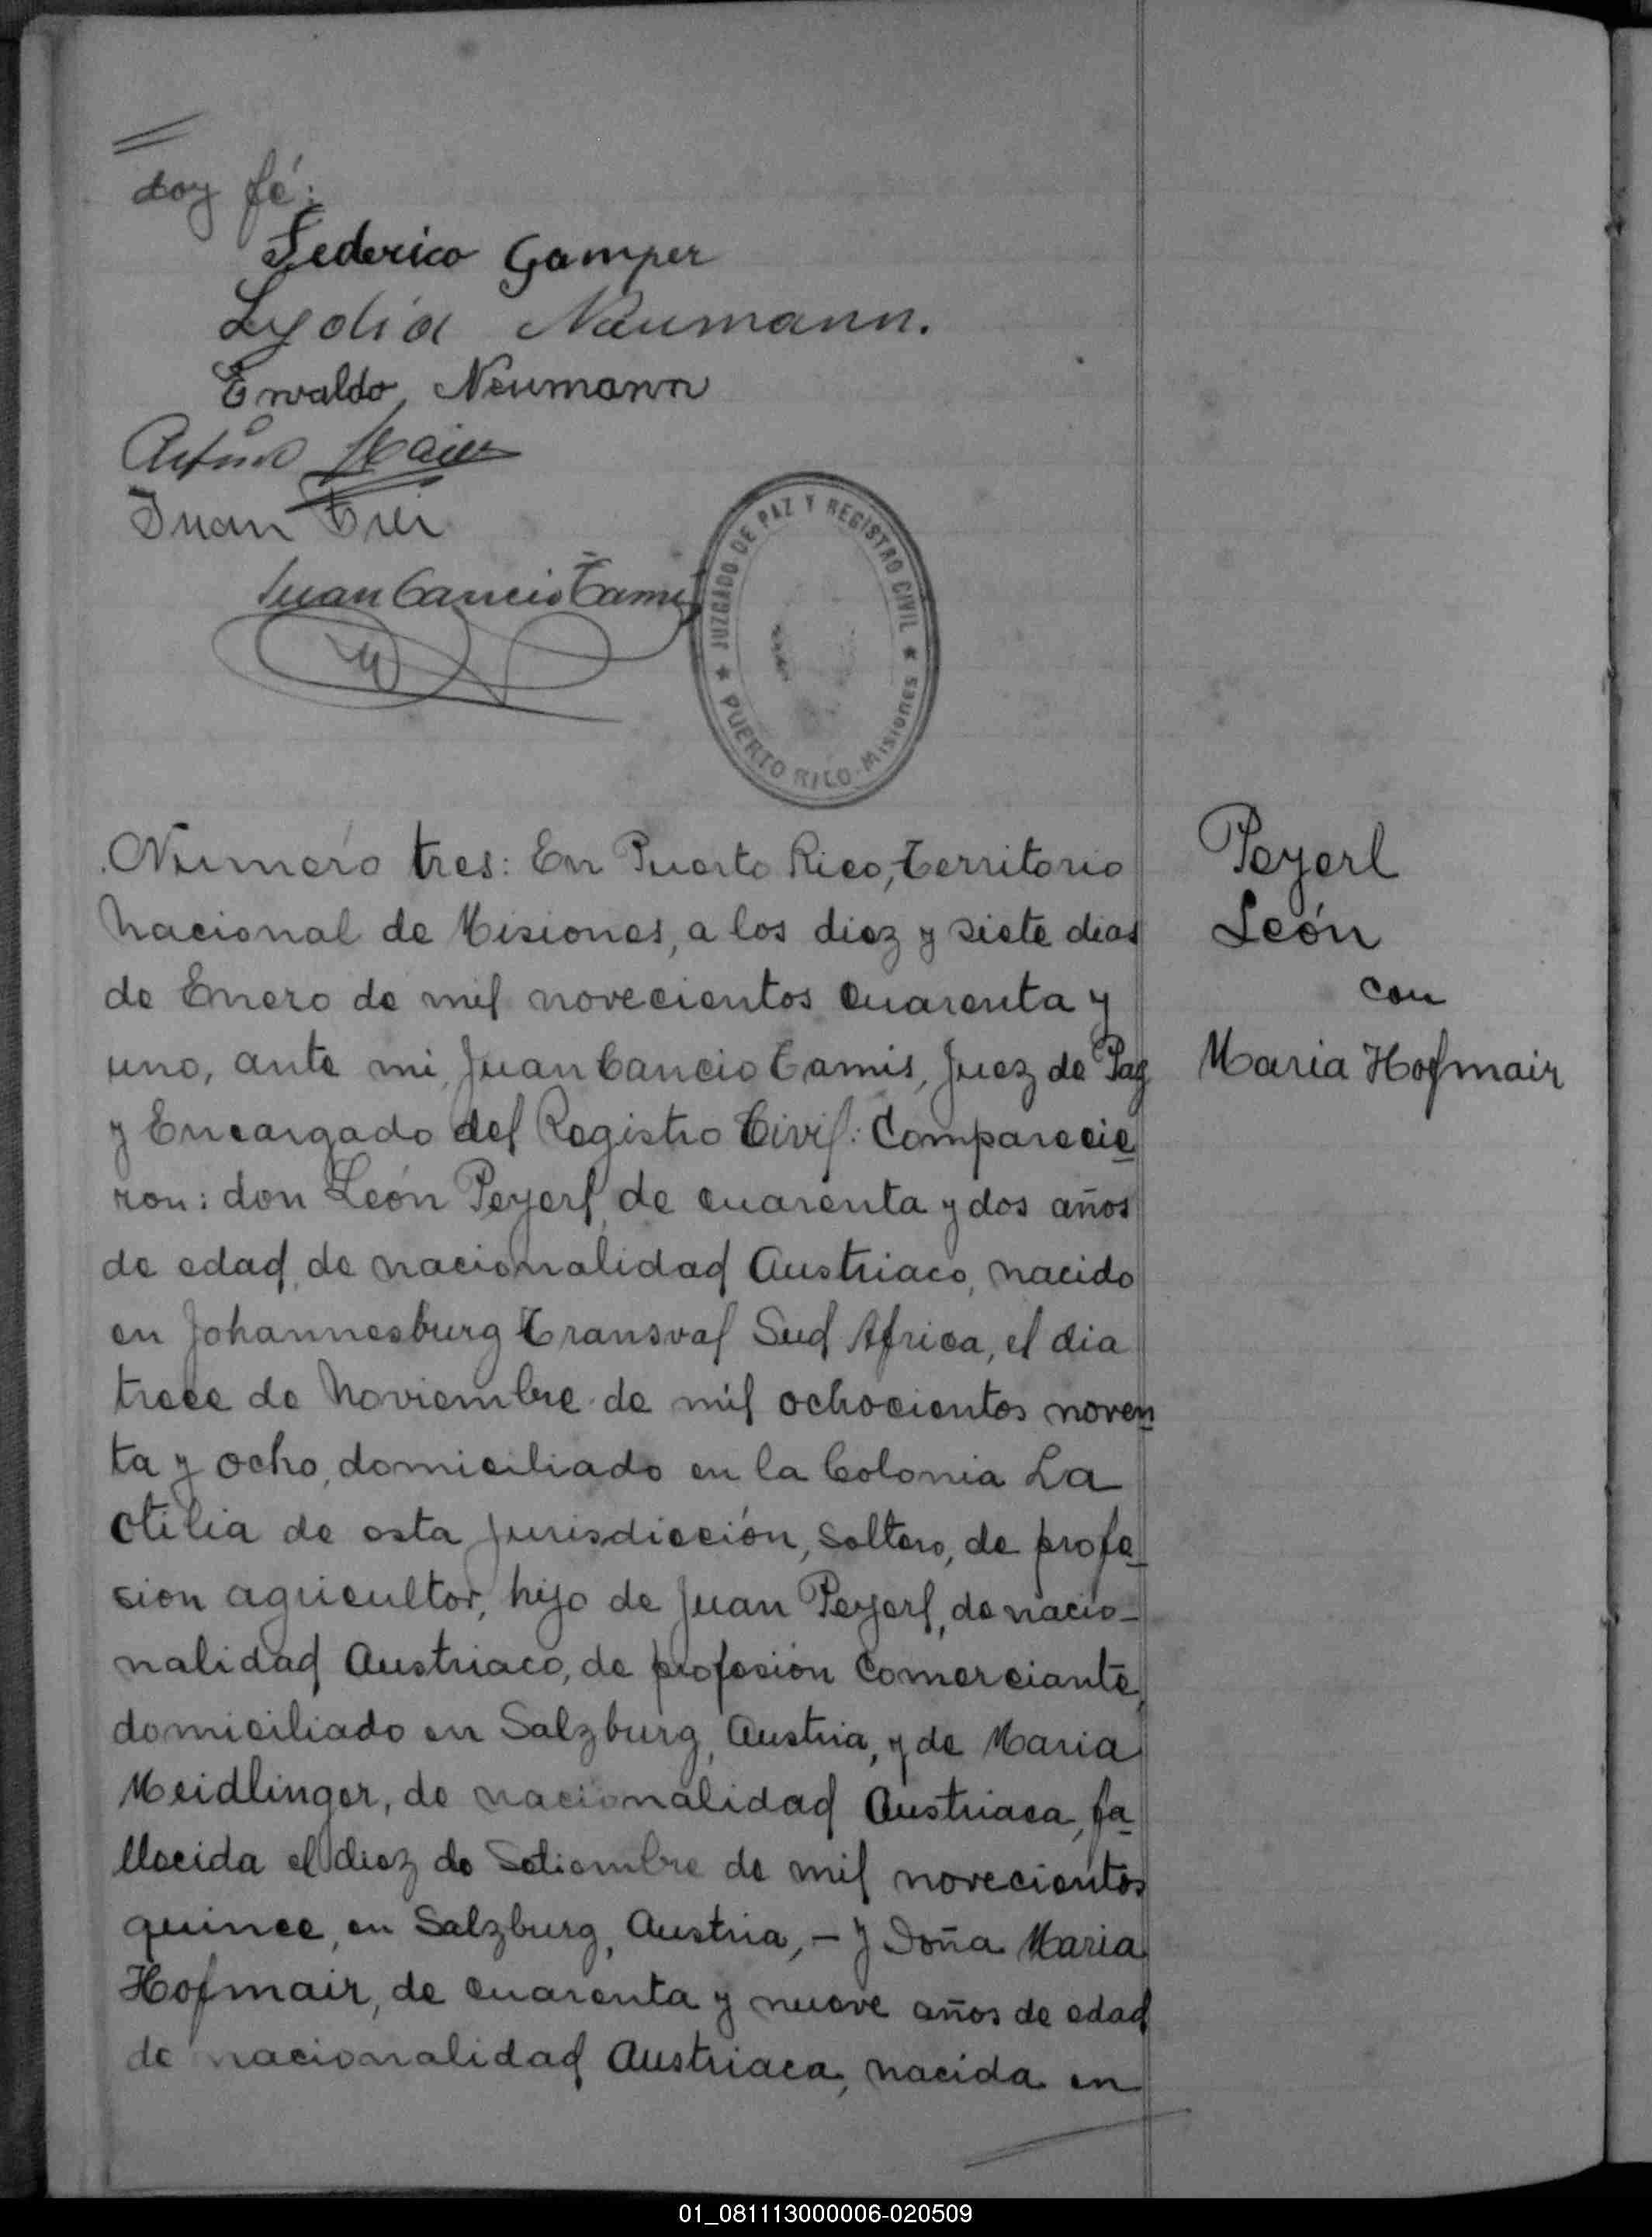 doy fé:
Federico Gamper
Lydia Neumann.
Erwaldo Neumann
Arturo Maier
Juan
Juan Cancio Tamis
JUZGADO DE PAZ Y REGISTRO CIVIL
PUERTO RICO-MISIONES
Numero tres: En Puerto Rico, Territorio
Nacional de Misiones, a los diez y siete dias
de Enero de mil novecientos cuarenta y
uno, ante mi, Juan Cancio Tamis, Juez de Paz
y Encargado del Registro Civil: Comparecie
ron: don León Peyerl, de cuarenta y dos años
de edad, de nacionalidad Austriaco, nacido
en Johannesburg Transval Sud Africa, el dia
trece de Noviembre de mil ochocientos noven
ta y ocho, domiciliado en la Colonia La
Otilia de esta Jurisdicción, Soltero, de profe
sion agricultor, hijo de Juan Peyerl, de nacio-
nalidad Austriaco, de profesión Comerciante,
domiciliado en Salzburg, Austria, y de Maria
Meidlinger, de nacionalidad Austriaca, fa
llecida el diez de Setiembre de mil novecientos
quince, en Salzburg, Austria, - y Doña Maria
Hofmair, de cuarenta y nueve años de edad
de nacionalidad Austriaca, nacida en
Peyerl
León
con
Maria Hofmair
01_081113000006-020509